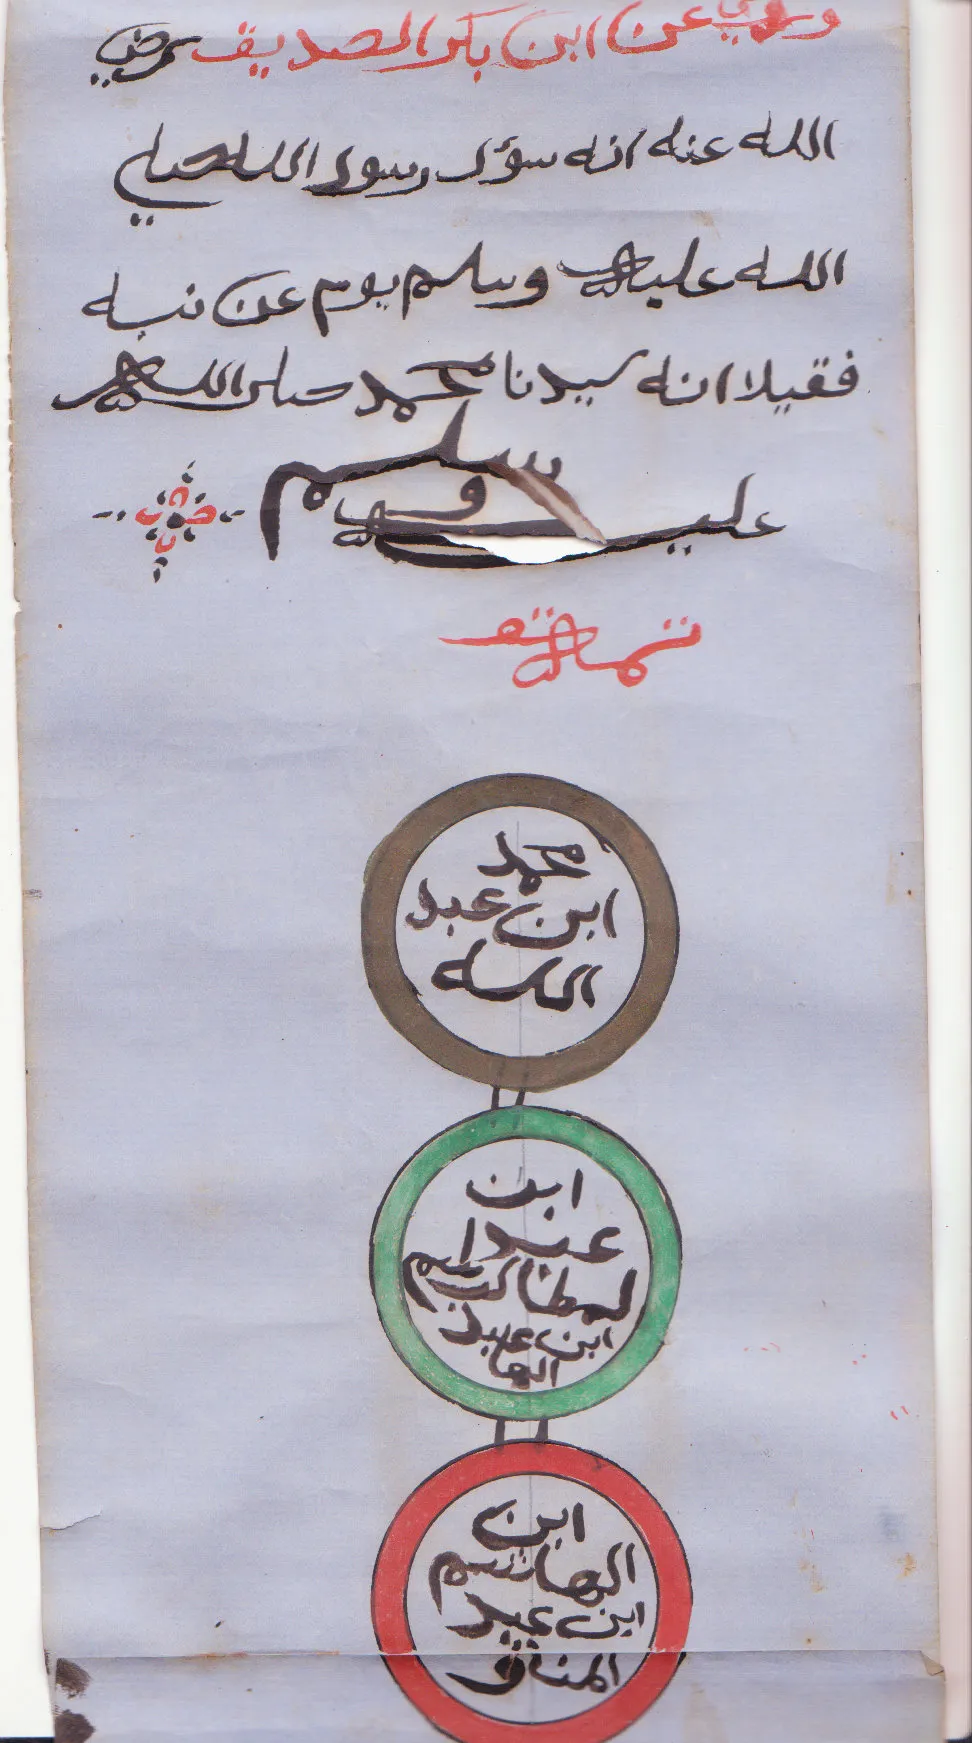 وروي عن ابن بكر الصديق رضي
الله عنه انه سؤل رسول الله صلي
الله عليه وسلم يوم عن نسبه
فقيلا انه سيدنا محمد صلى الله
عليه وسلم
محمد
ابن عبد
الله
ابن
عبدا
لمطالب
ابن
الهاشم
ابن عبد
المناف